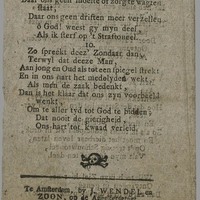 Daar ons geen moeite of zorg te wagten
staat,
Daar ons geen driften meer verzellen
ô God! weest gy myn deel,
Als ik sterf op 't Straftooneel.
10.
Zo spreekt deez' Zondaar dan,
Terwyl dat deeze Man,
Aan jong en Oud als tot een spiegel strekt
En in ons hart het medelyden wekt,
Als men de zaak bedenkt,
Dan is het klaar dat ons zyn voorbeeld
wenkt
Om te aller tyd tot God te bidden;
Dat nooit de gierigheid,
Ons hart tot kwaad verleid.
Te Amsterdam, by J. WENDEL en
ZOON, op de